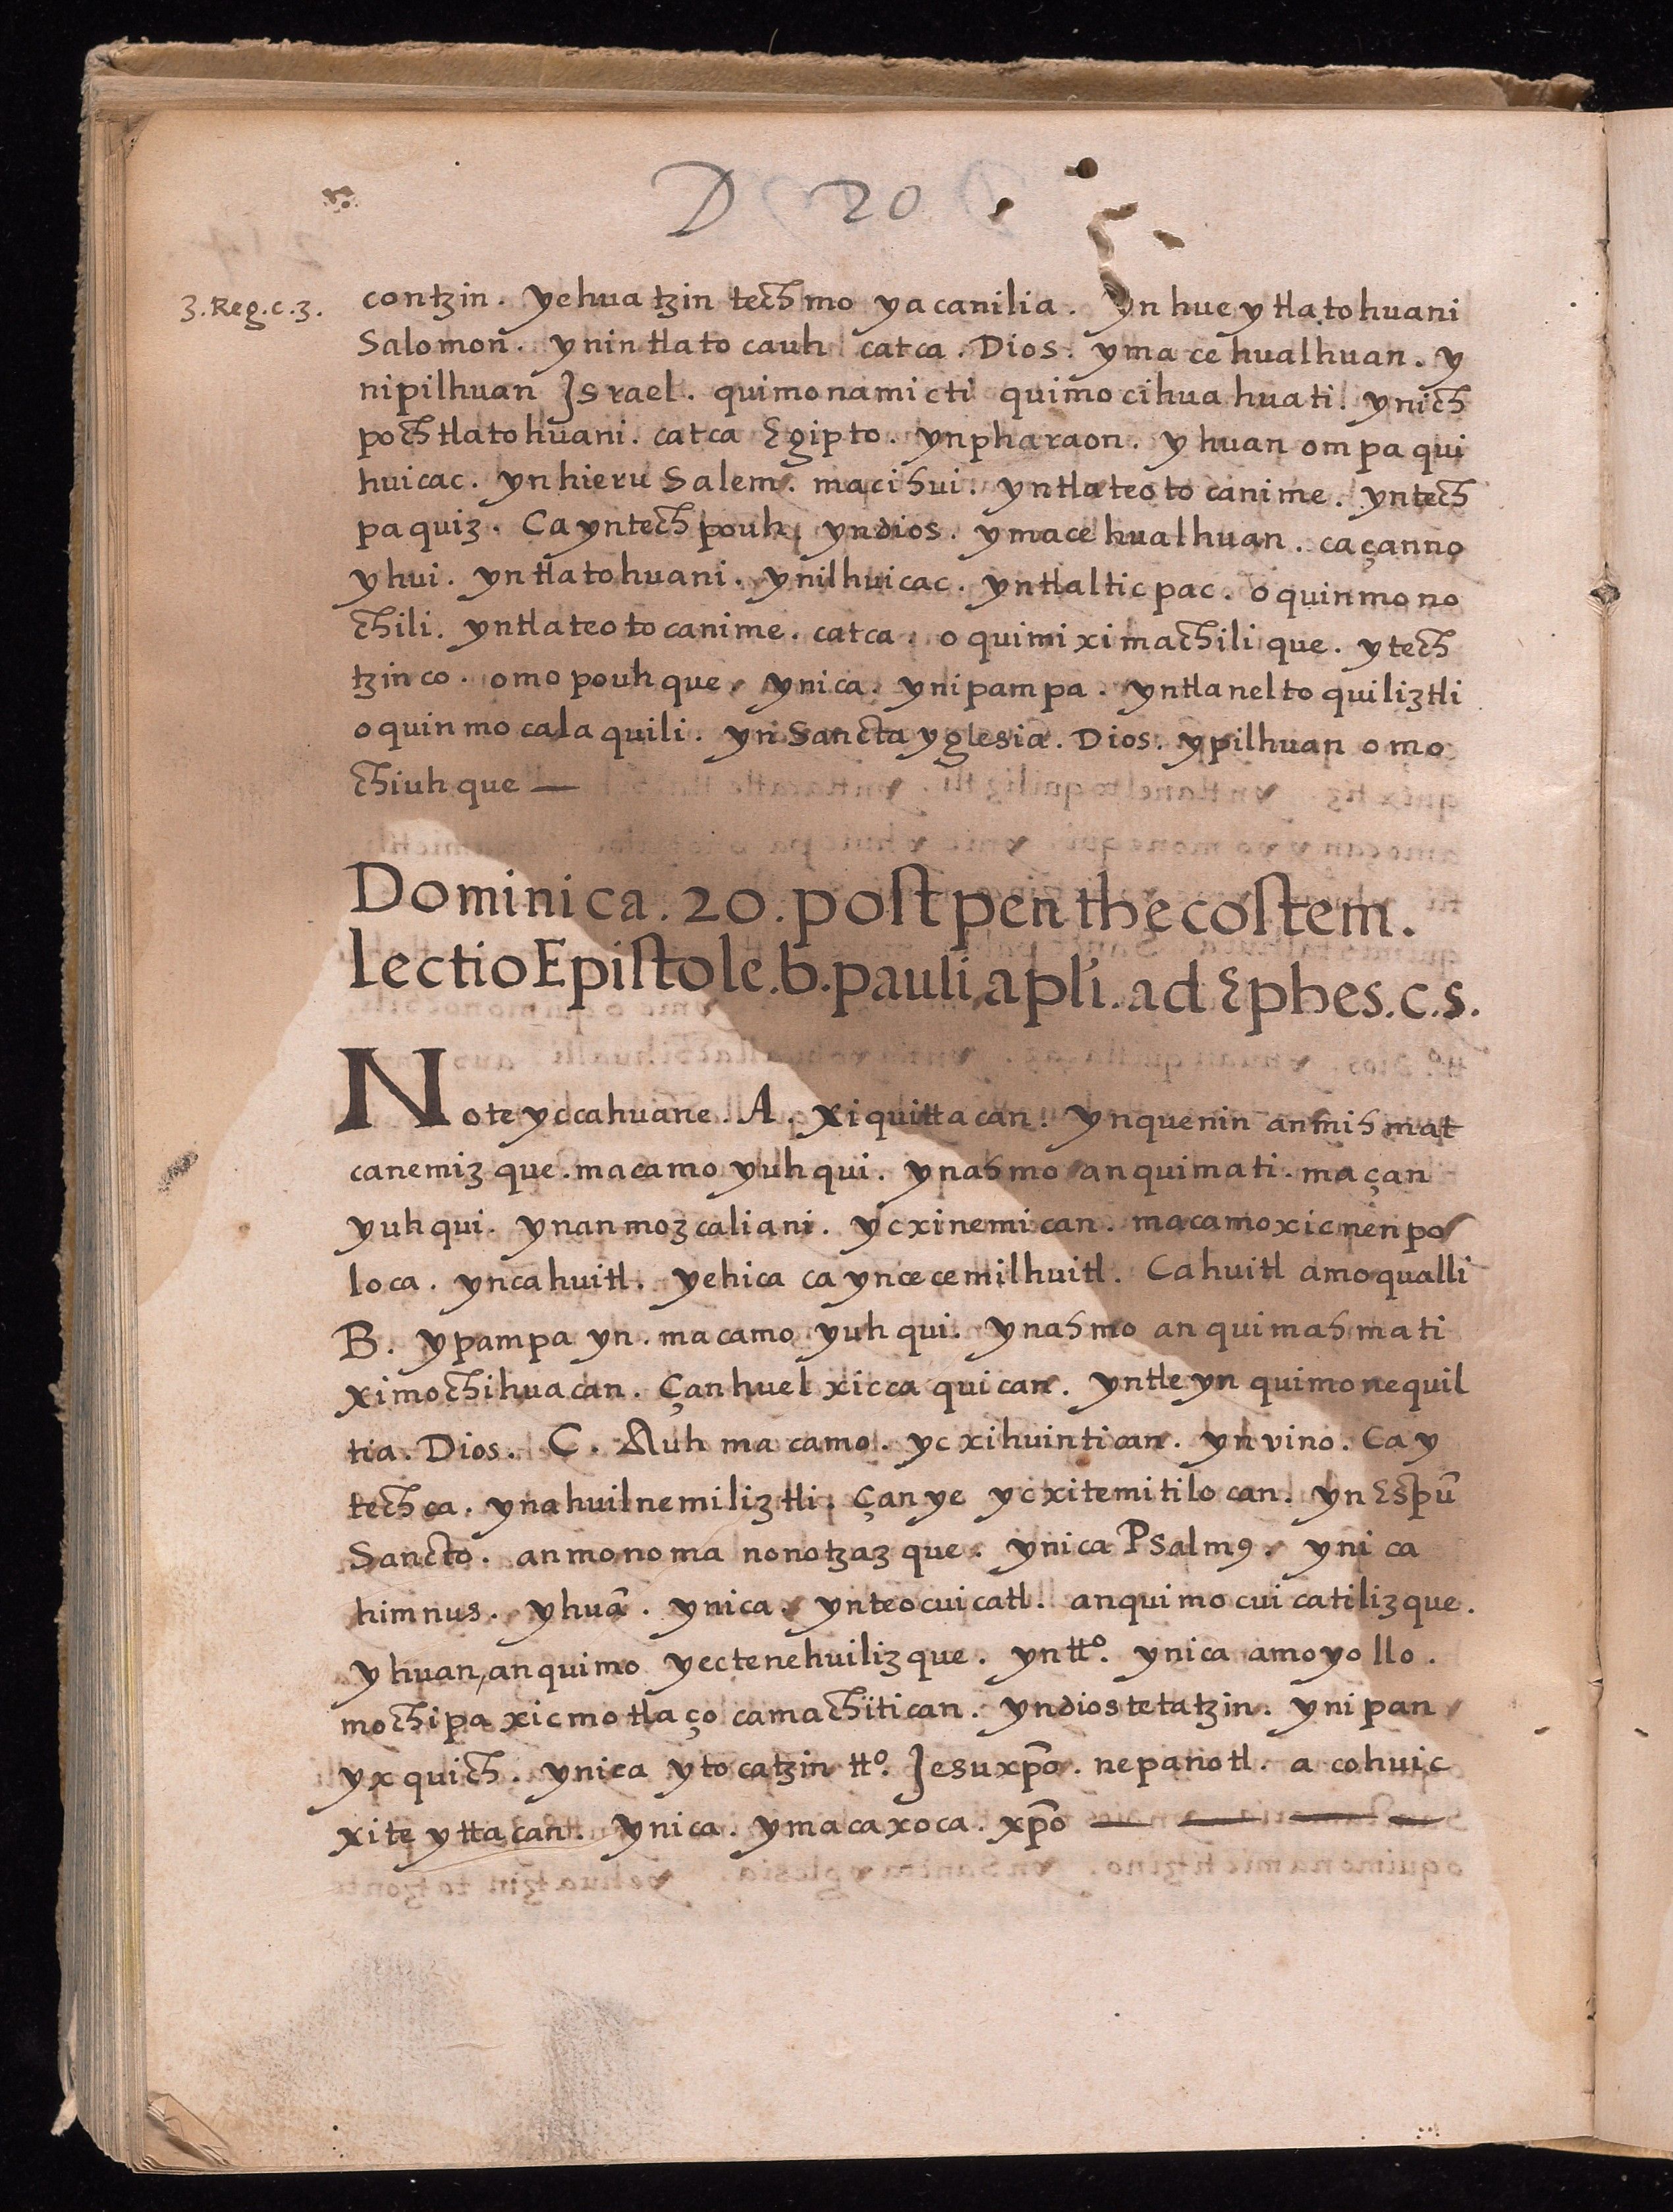 D 20
3. Reg. c. 3.
contzin. yehuatzin techmo yacanilia. yn huey tlatohuani
Salomon. ynin tlatocauh catca. Dios. ymacehualhuan. y
nipilhuan Israel. quimonamicti quimocihuahuati. ynich
poch tlatohuani. catca Egipto. yn pharaon. yhuan ompa qui
huicac. yn hieruSalem. macihui. yntlateotocanime. yntech
paquiz. Ca yntech pouh, yn dios. ymacehualhuan. caçanno
yhui. yn tlatohuani. ynilhuicac. yntlalticpac. oquinmono
chili. yntlateotocanime. catca. oquimiximachilique. ytech
tzinco. omopouhque. ynica. ynipampa. yntlaneltoquiliztli
oquinmocalaquili. yn Sancta yglesia. Dios. ypilhuan omo
chiuhque —
Dominica. 20. post penthecostem.
lectio Epistole. b. pauli apli. ad Ephes. c. 5.
Noteyccahuane. A. xiquittacan. ynquenin anmihmat
canemizque. macamo yuhqui. ynahmo anquimati. maçan
yuhqui. ynanmozcaliani. yc xinemican. macamo xicnenpo
loca. yncahuitl. yehica ca yncecemilhuitl. Cahuitl amo qualli
B. ypampa yn. macamo yuhqui. ynahmo anquimahmati
ximochihuacan. Çanhuel xiccaquican. yntleyn quimonequil
tia. Dios. C. Auh macamo. yc xihuintican. yn vino. Ca y
techca. ynahuilnemiliztli. Çan ye yc xitemitilocan. yn Espũ
Sancto. anmonomanonotzazque. ynica Psalm9. ynica
himnus. yhuã. ynica. ynteocuicatl. anquimocuicatilizque.
yhuan, anquimo yectenehuilizque. yn ttº. ynica amoyollo.
mochipa xicmotlaçocamachitican. yndios tetatzin. ynipan
yxquich. ynica ytocatzin ttº. Jesu xp̃o. nepanotl. acohuic
xiteyttacan. ynica. ymacaxoca. xp̃o — — — —